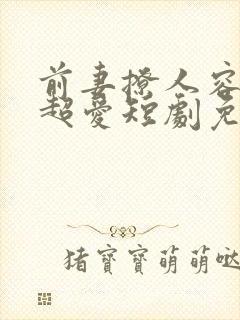 前妻撩人容
超爱短劇免
猪寶寶萌萌哒